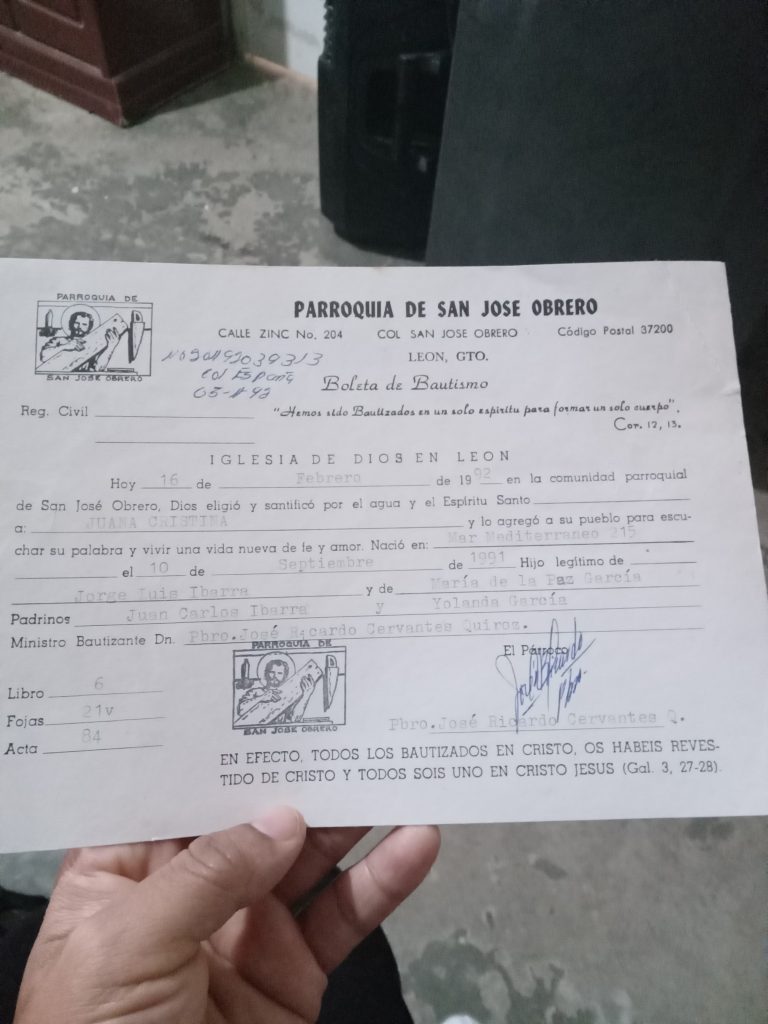 PARROQUIA DE
SAN JOSE OBRERO
PARROQUIA DE SAN JOSE OBRERO
CALLE ZINC No. 204 COL SAN JOSE OBRERO Código Postal 37200
LEON, GTO.
Boleta de Bautismo
Reg. Civil
"Hemos sido Bautizados en un solo espíritu para formar un solo cuerpo".
Cor. 12, 13.
IGLESIA DE DIOS EN LEON
Hoy 16 de Febrero de 1992 en la comunidad parroquial
de San José Obrero, Dios eligió y santificó por el agua y el Espíritu Santo
a: JUANA CRISTINA y lo agregó a su pueblo para escu-
char su palabra y vivir una vida nueva de fe y amor. Nació en: Mar Mediterraneo 215
el 10 de Septiembre de 1991 Hijo legítimo de
Jorge Luis Ibarra y de María de la Paz García
Padrinos Juan Carlos Ibarra y Yolanda García
Ministro Bautizante Dn. Pbro.José Ricardo Cervantes Quiroz.
PARROQUIA DE
SAN JOSE OBRERO
El Párroco
Libro 6
Fojas 21v
Acta 84
Pbro.José Ricardo Cervantes Q.
EN EFECTO, TODOS LOS BAUTIZADOS EN CRISTO, OS HABEIS REVES-
TIDO DE CRISTO Y TODOS SOIS UNO EN CRISTO JESUS (Gal. 3, 27-28).